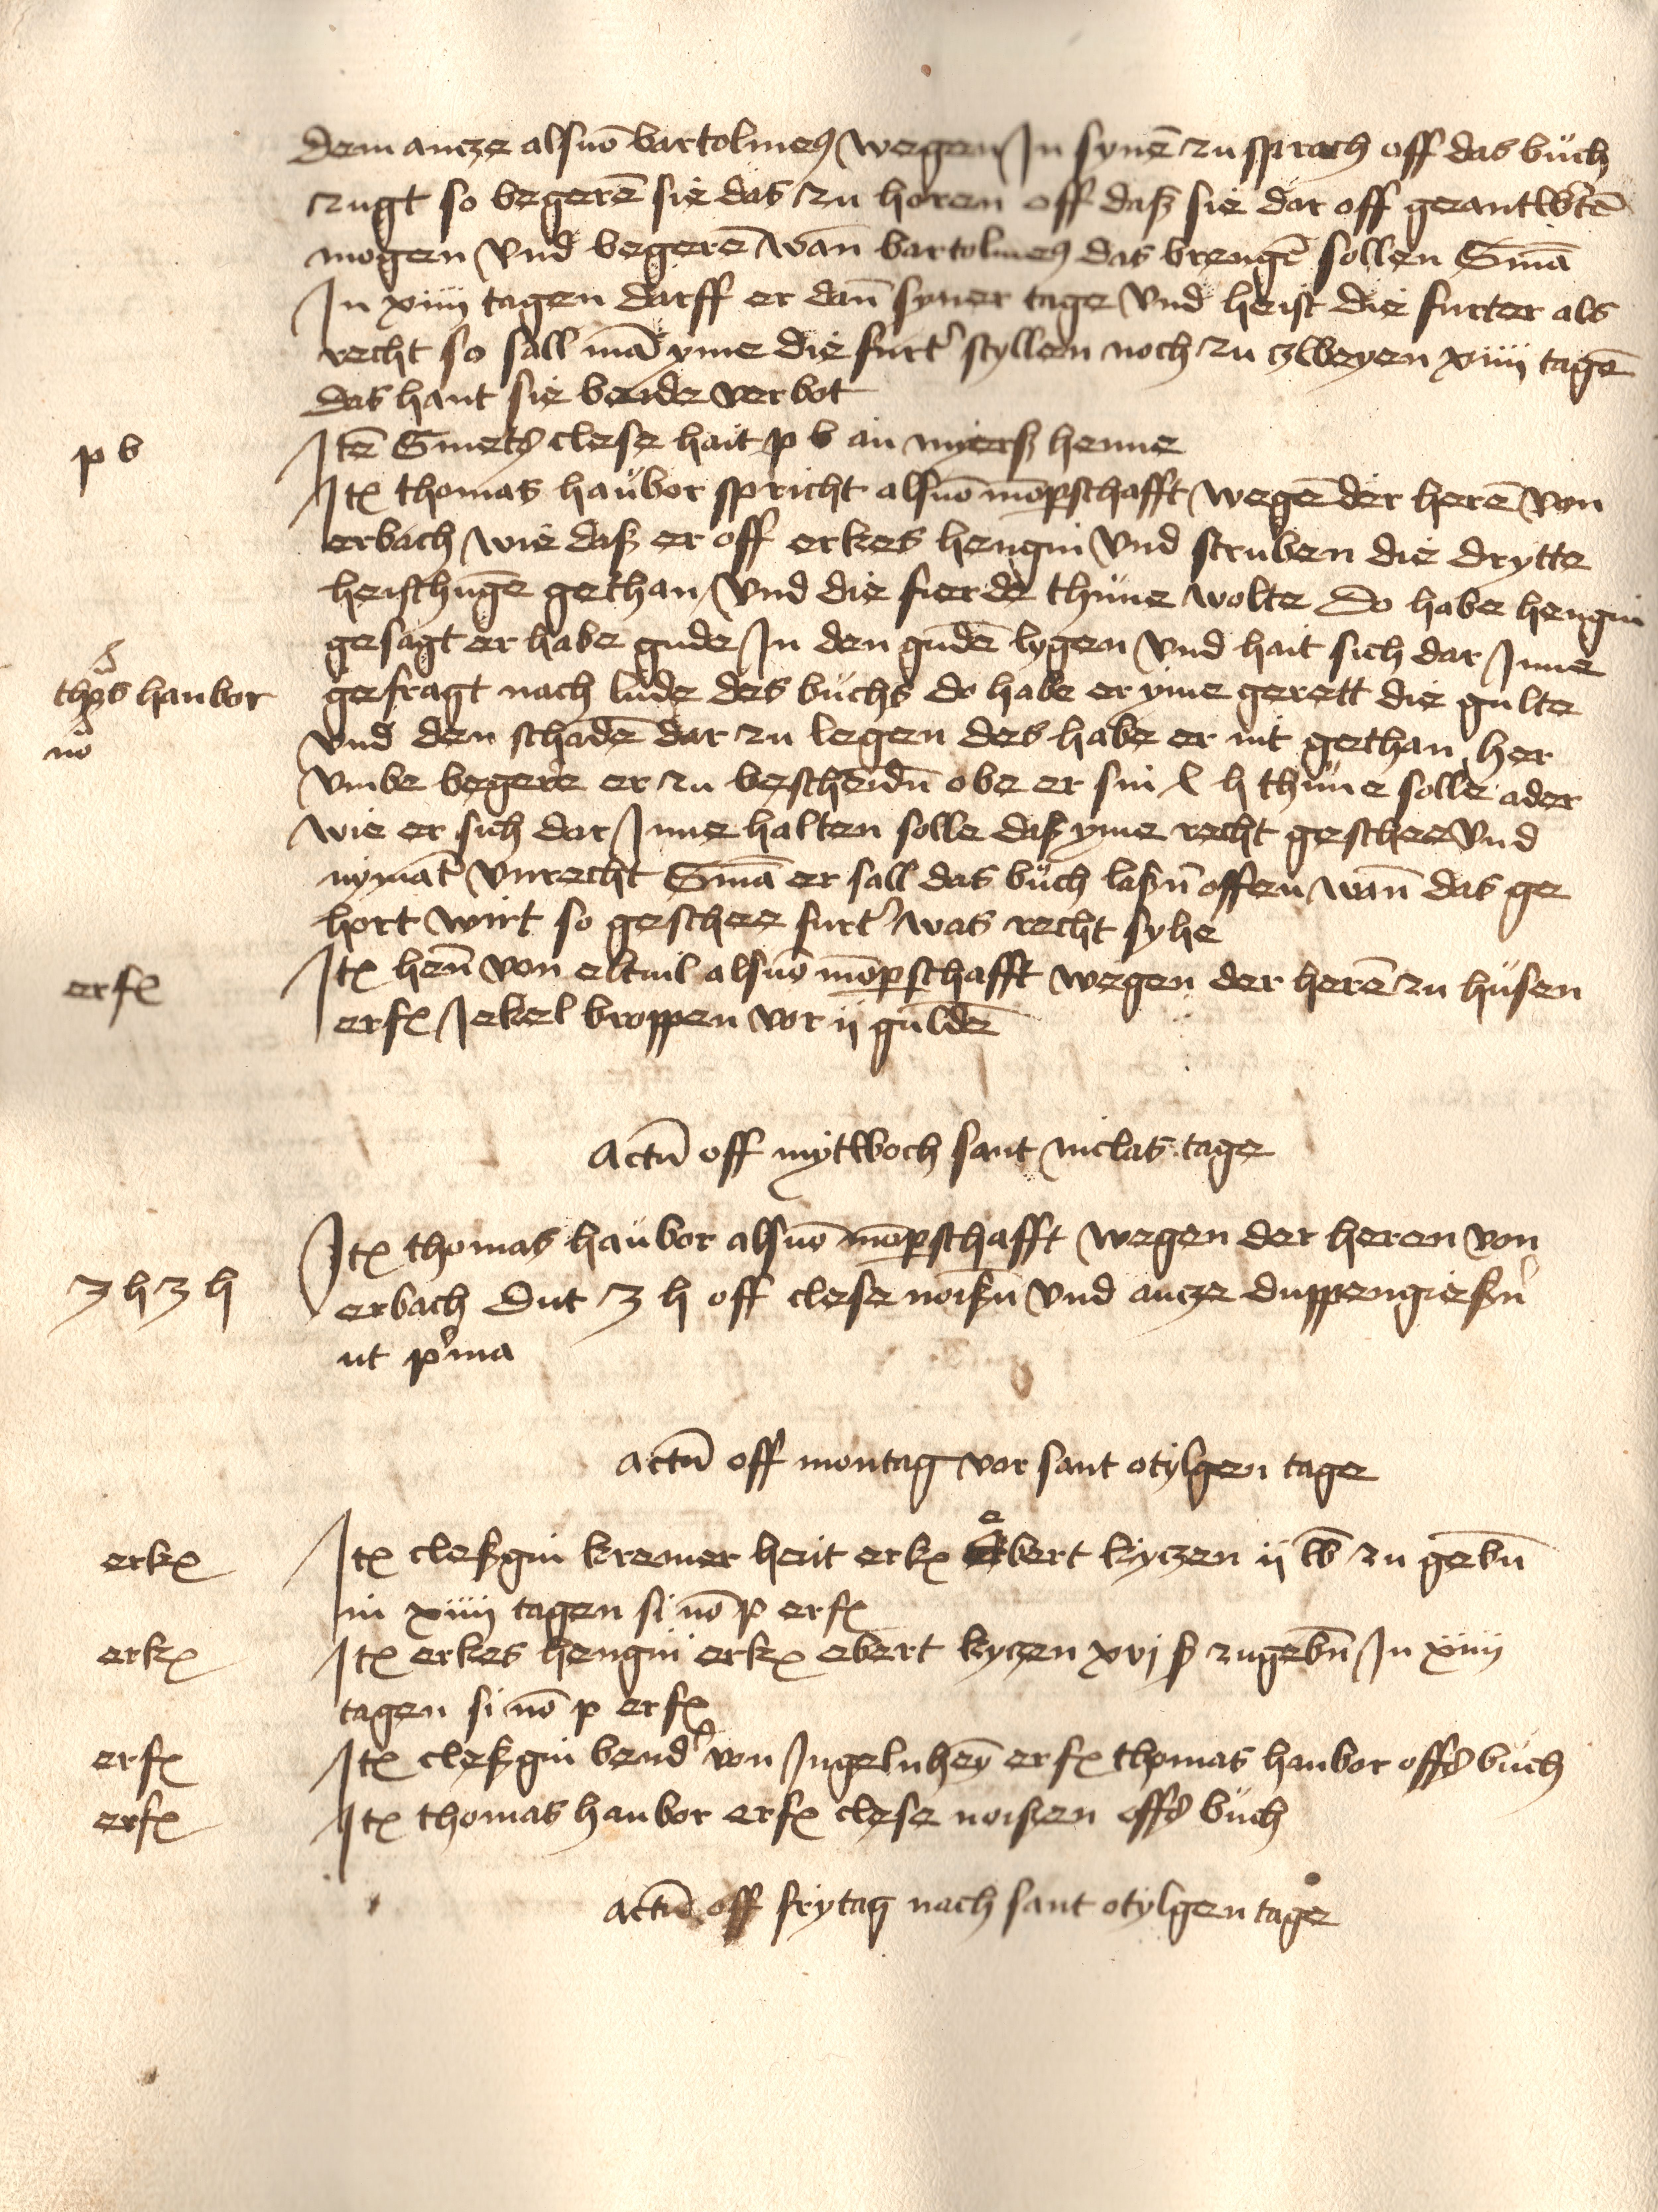 Dem ancze als vō bartolmeꝰ wegen Jn synē zu sprach off das bůch
zugt so begerē sie das zu horen off daß sie dar off geantwˀtē
mogen vnd begerē wan̄ bartolmeꝰ das brengē sollen Smā
Jn xiiij tagen darff er dan̄ syner tage vnd heist die furter als
recht so sall mā yme die furtˀ styllen noch zu zweyen xiiij tagē
das hant sie beide verbot
p b
Jtē Smetꝭ clese hait p b an myerß henne
Jtꝫ thomas haůbor spricht als vō mōpschafft wegē der herē von
erbach wie daß er off erkes hengin vnd struben die drytte
heischūge gethan vnd die fierde thůne wolte do habe hengin
gesagt er habe gude Jn den gudē lygen vnd hait sich dar Jnne
thōs haubor
gefragt nach lude des bůchs do habe er yme gerett die gulte
nō
vnd den schadē dar zu legen des habe er nit gethan her
vmbe begere er zu bescheidn̄ obe er sin l h thůne solle ader
wie er sich dar Jnne halten solle daß yme recht geschee vnd
nymātˀ vnrecht Smā er sall das bůch laßn̄ offen wan̄ das ge
hort wirt so geschee furtˀ was recht syhe
erfꝫ
Jtꝫ hen̄ von eltuil als vō mōpschafft wegen der herē zu hůsen
erfꝫ Jekel broppen vor ij guldē
Actū off mytwoch sant niclas tage
Jtꝫ thomas haůbor als vō mōpschafft wegen der heren von
3 h 3 h
erbach dut 3 h off clese noißn̄ vnd ancze duppengießn̄
ut pˀma
Actū off montag vor sant otylgen tage
erkꝫ
Jtꝫ cleßgin kremer heit erkꝫ ebert kyczen ij lb zu gebn̄
in xiiij tagen si nō p erfꝫ
erkꝫ
Jtꝫ erkes hengin erkꝫ ebert kyczen xvj ß zugebn̄ Jn xiiij
tagen si nō p erfꝫ
erfꝫ
Jtꝫ cleßgin bendˀ von Jngelnheȳ erfꝫ thomas haubor offꝭ bůch
erfꝫ
Jtꝫ thomas haubor erfꝫ clese noißen offꝭ bůch
Actū off frytag nach sant otylgen tage